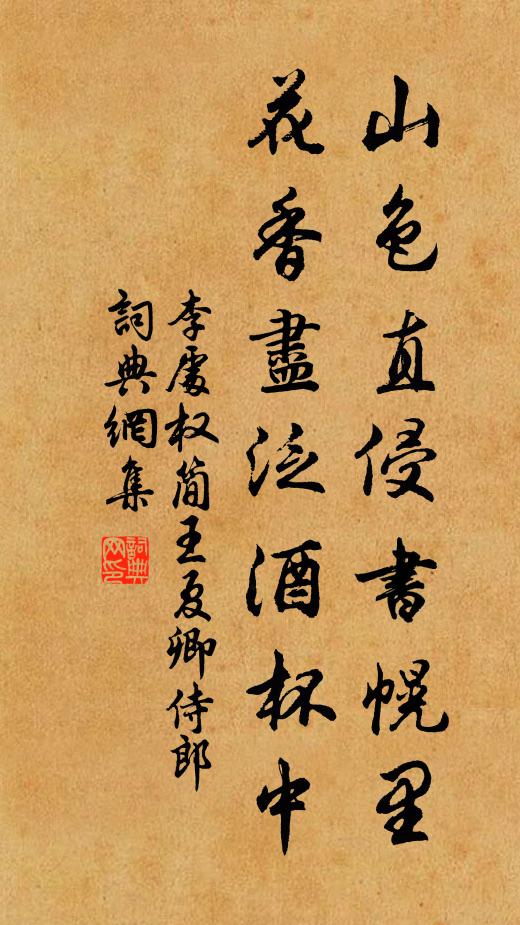 山色直侵書幌里
花香盡泛酒杯中
李處权简王夏卿侍郎
詞典網集
詞典网印